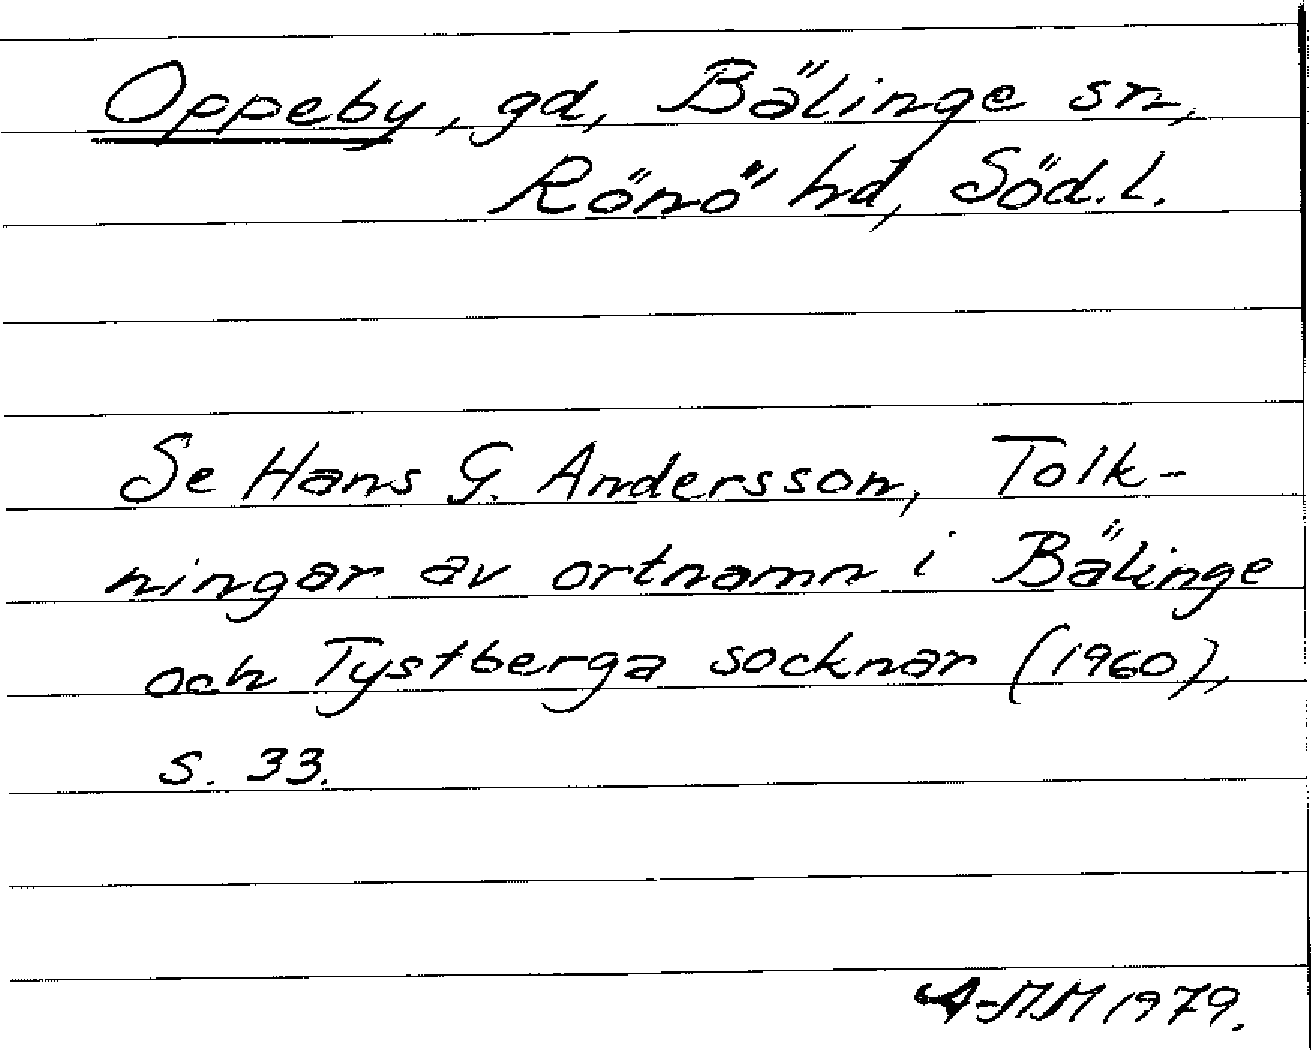 Oppeby, gd, Bälinge sn,
Rönö hd, Söd.l.
Se Hans G. Andersson, Tolk-
ningar av ortnamn i Bälinge
och Tystberga socknar (1960),
s. 33.
A-MM 1979.